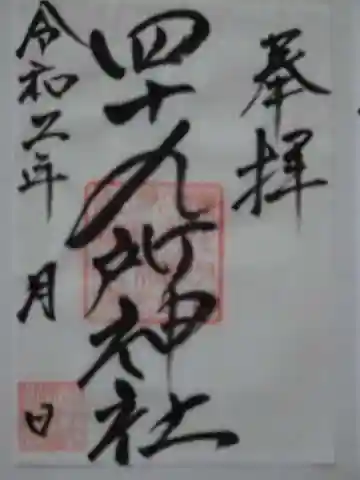 奉拝
四十九所神社
令和二年
月
日